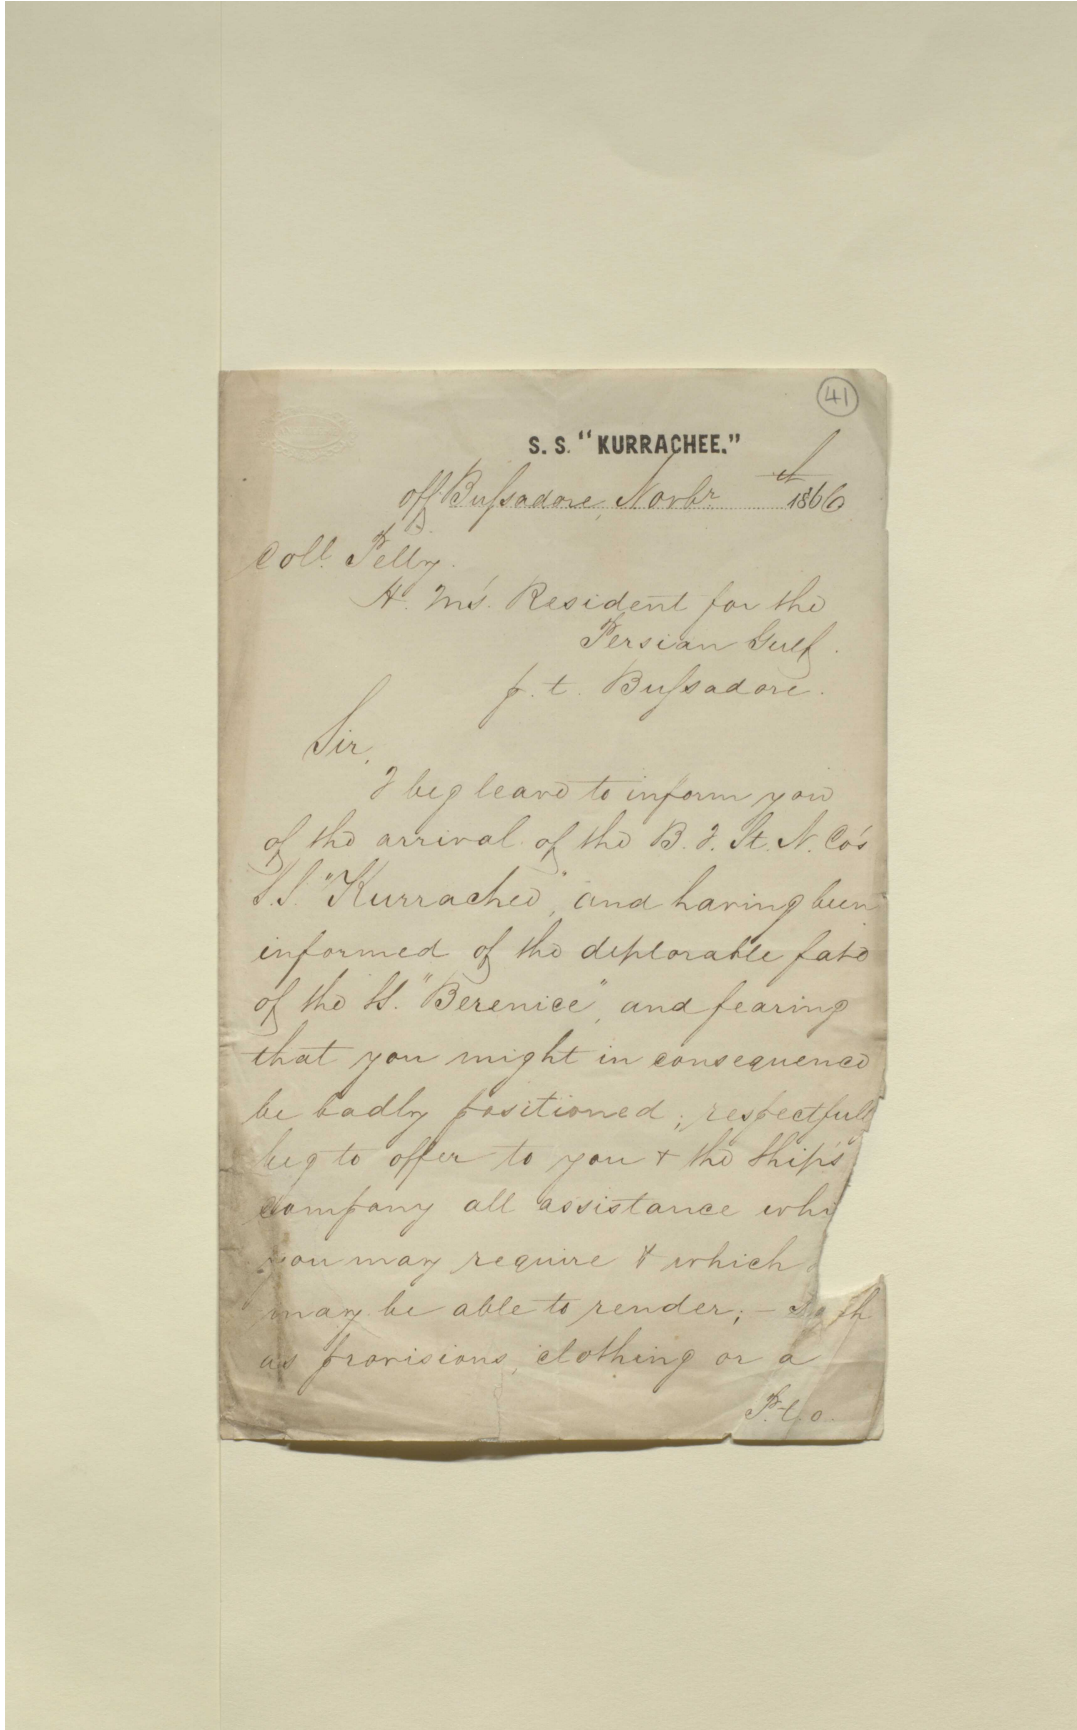 41
S. S. "KURRACHEE."
off Bussadore, Novbr 1866
Coll. Pelly.
H. M's. Resident for the
Persian Gulf.
p. t. Bussadore.
Sir,
I beg leave to inform you
of the arrival of the B. I. St. N. Co's
S.S. "Kurrachee", and having been
informed of the deplorable fate
of the SS. "Berenice", and fearing
that you might in consequence
be badly positioned; respectfull
beg to offer to you + the ship's
company all assistance whi
you may require & which
may be able to render; -
as provisions, clothing or a
P.t.o.